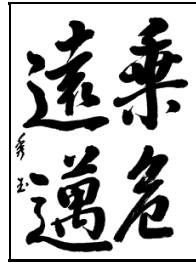 乗危
遠邁
秀玉